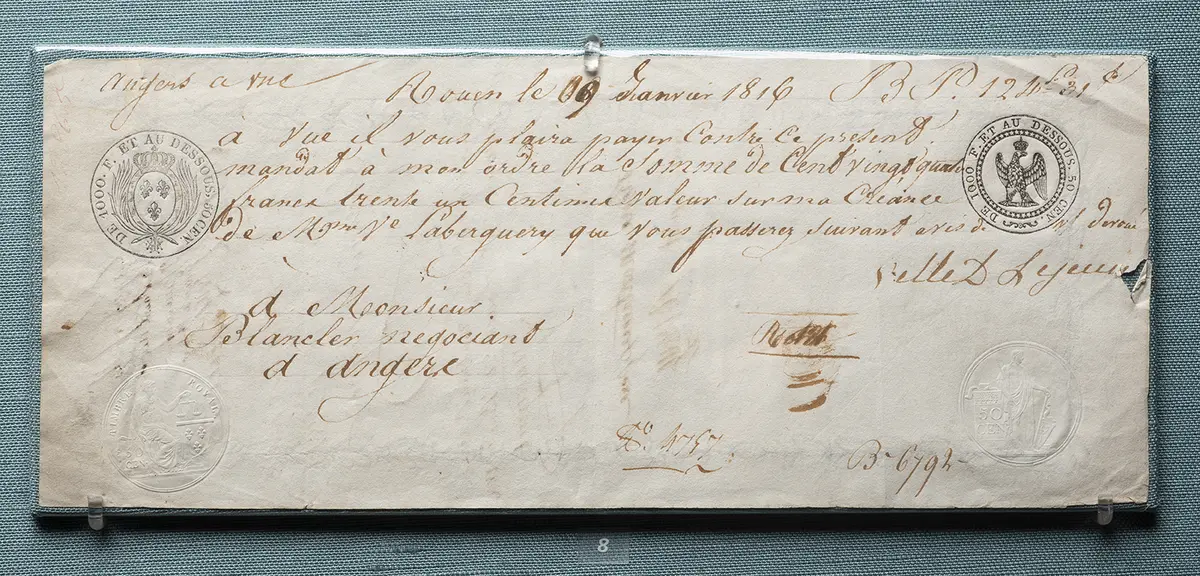 Angers a vue
Rouen le 09 Janvier 1816 B P. 124 fs 31 c
à vue il vous plaira payer Contre ce present
mandat à mon ordre la Somme de Cent vingt quatre
francs trente un Centimes valeur sur ma Creance
de que vous passerez suivant avis de dévoué
DE 1000. F. ET AU DESSOUS. 50 CEN.
DE 1000 F. ET AU DESSOUS. 50 CEN.
Lejeune
à Monsieur
Blancler negociant
a angers
TIMBRE ROYAL
50 CEN
No. 4757
B 6792
8